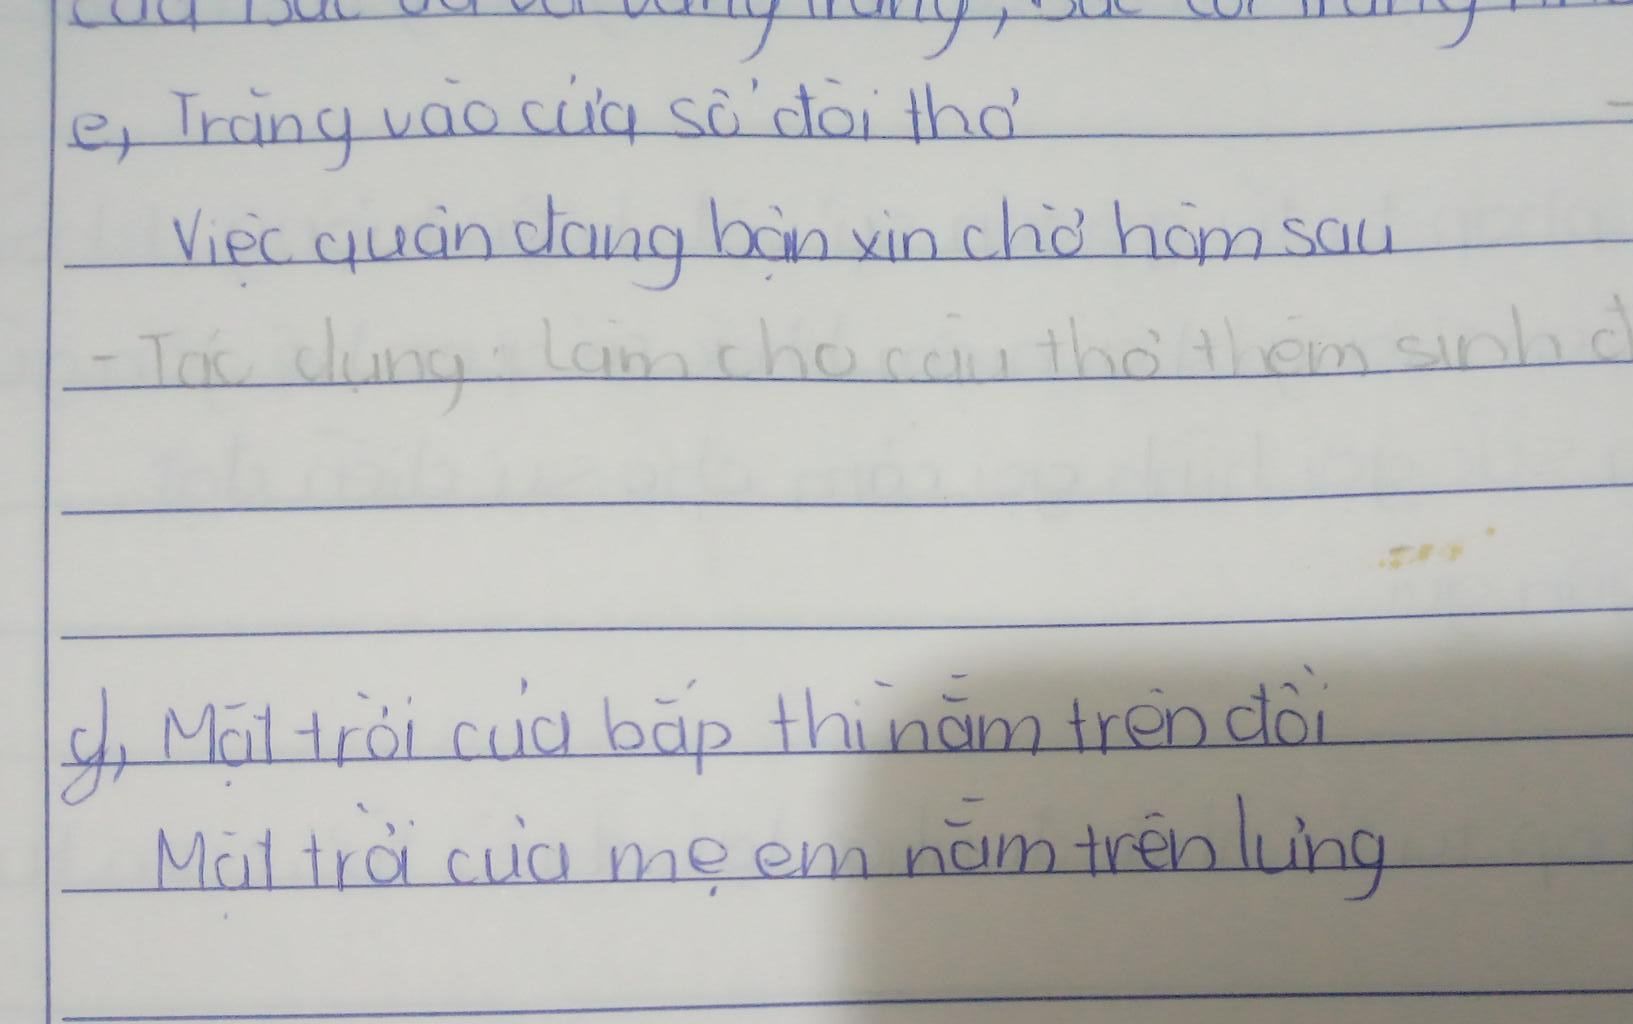 e, Trăng vào cửa sổ đòi thơ
Việc quân đang bận xin chờ hôm sau
- Tác dụng: làm cho câu thơ thêm sinh đ
g, Mặt trời của bắp thì nằm trên đồi
Mặt trời của mẹ em nằm trên lưng